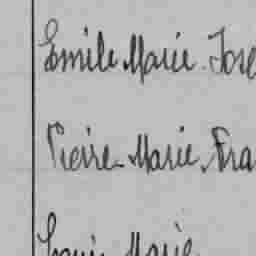 Emile Marie Jose
Pierre Marie Fra
Louis Marie